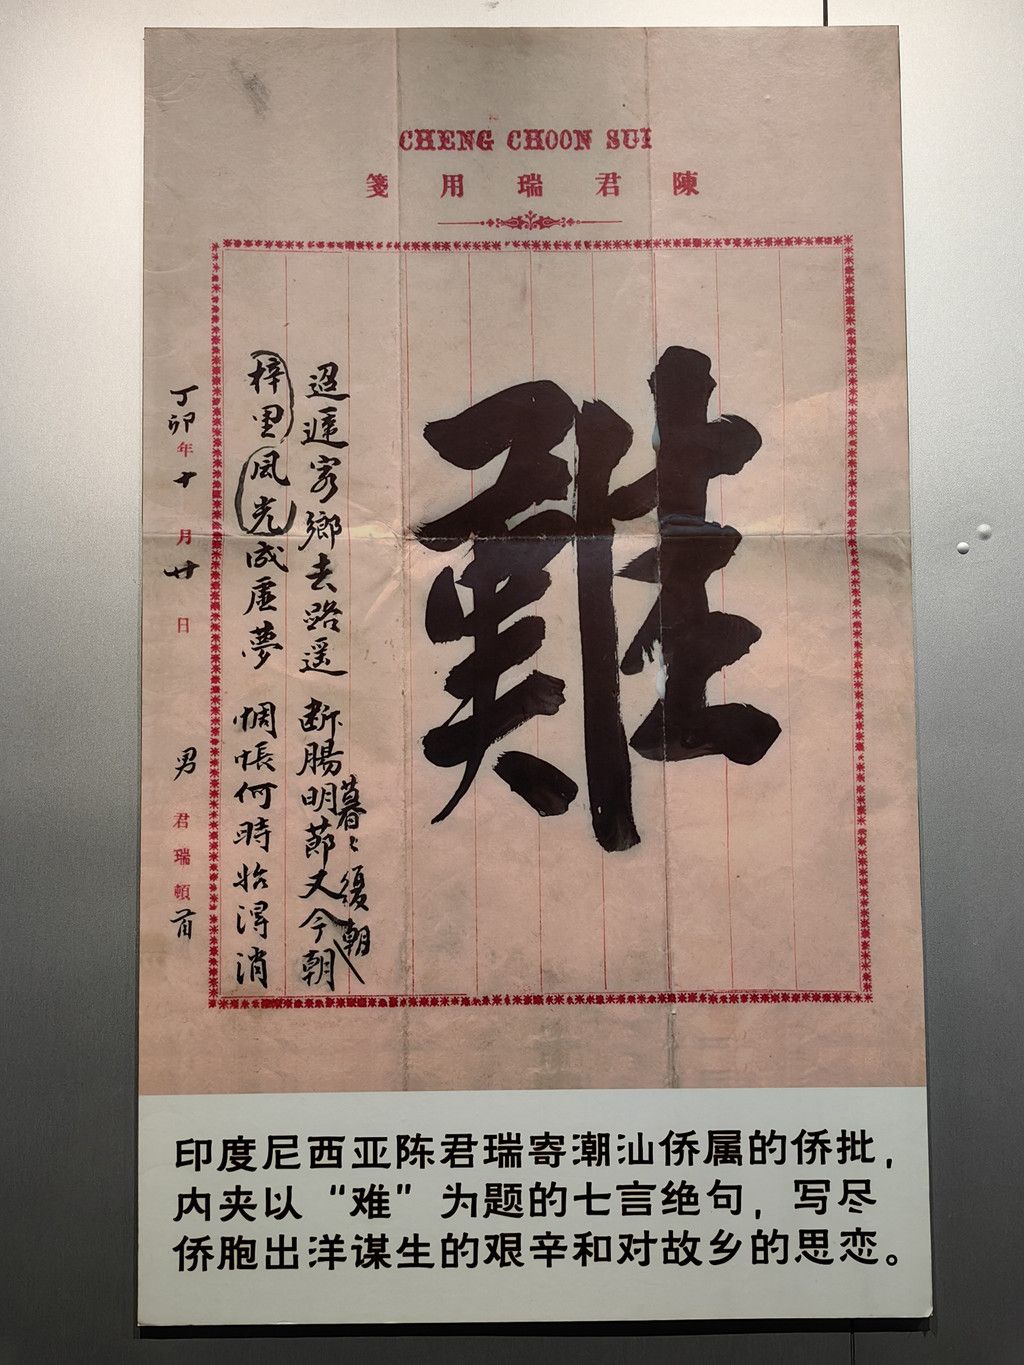 CHENG CHOON SUI
陳君瑞用箋
難
迢遞客鄉去路遥 断腸明節又今朝
暮々復朝
梓里風光成虛夢 惆悵何時始得消
丁卯年十月廿日 男 君瑞頓首
印度尼西亚陈君瑞寄潮汕侨属的侨批，
内夹以“难”为题的七言绝句，写尽
侨胞出洋谋生的艰辛和对故乡的思恋。